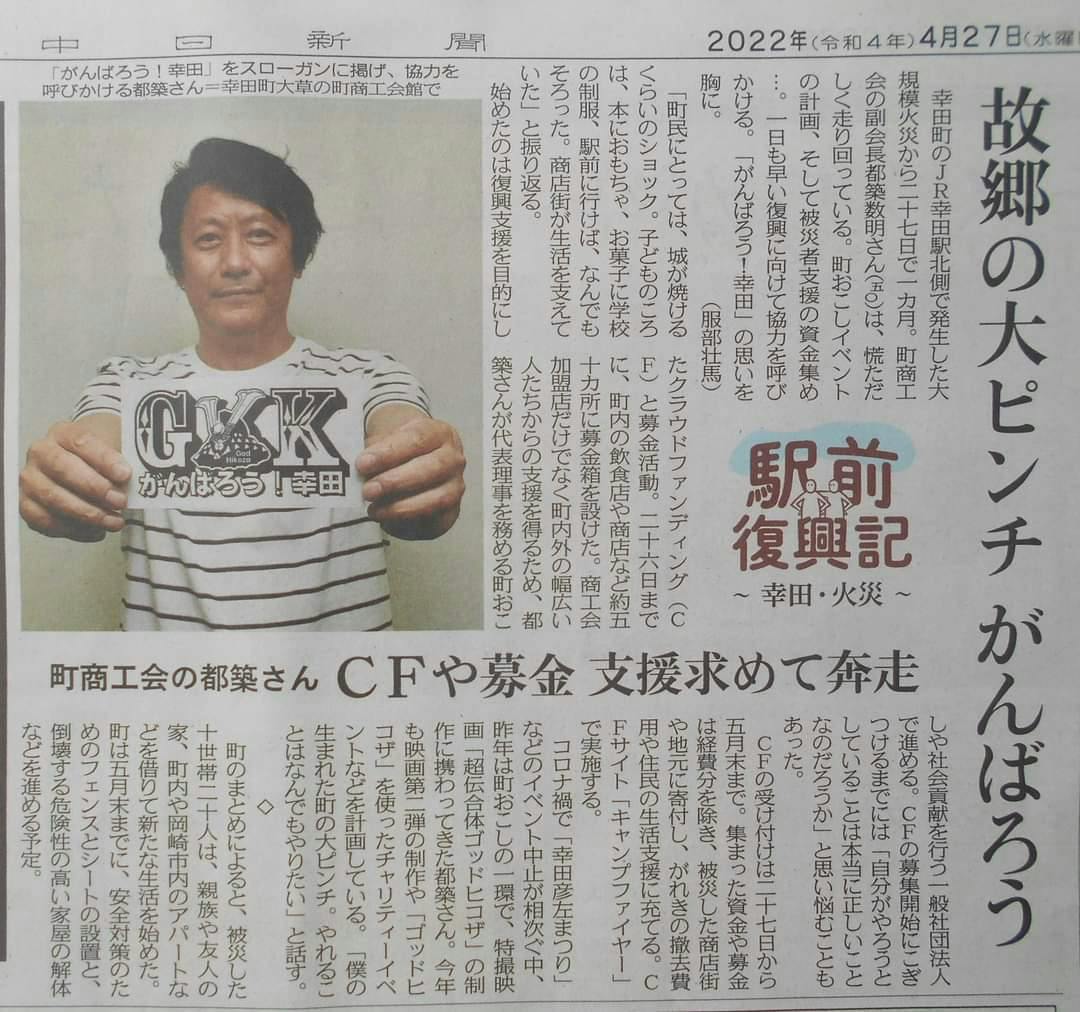 中日新聞
2022年(令和4年)4月27日(水曜日
故郷の大ピンチ がんばろう
「がんばろう！幸田」をスローガンに掲げ、協力を
呼びかける都築さん＝幸田町大草の町商工会館で
GKK
God
Hikoza
がんばろう！幸田
幸田町のＪＲ幸田駅北側で発生した大
規模火災から二十七日で一カ月。町商工
会の副会長都築数明さん(五〇)は、慌ただ
しく走り回っている。町おこしイベント
の計画、そして被災者支援の資金集め
…。一日も早い復興に向けて協力を呼び
かける。「がんばろう！幸田」の思いを
胸に。
（服部壮馬）
駅前
復興記
～ 幸田・火災 ～
「町民にとっては、城が焼ける
くらいのショック。子どものころ
は、本におもちゃ、お菓子に学校
の制服、駅前に行けば、なんでも
そろった。商店街が生活を支えて
いた」と振り返る。
始めたのは復興支援を目的にし
たクラウドファンディング（Ｃ
Ｆ）と募金活動。二十六日まで
に、町内の飲食店や商店など約五
十カ所に募金箱を設けた。商工会
加盟店だけでなく町内外の幅広い
人たちからの支援を得るため、都
築さんが代表理事を務める町おこ
町商工会の都築さん ＣＦや募金 支援求めて奔走
しや社会貢献を行う一般社団法人
で進める。ＣＦの募集開始にこぎ
つけるまでには「自分がやろうと
していることは本当に正しいこと
なのだろうか」と思い悩むことも
あった。
ＣＦの受け付けは二十七日から
五月末まで。集まった資金や募金
は経費分を除き、被災した商店街
や地元に寄付し、がれきの撤去費
用や住民の生活支援に充てる。Ｃ
Ｆサイト「キャンプファイヤー」
で実施する。
コロナ禍で「幸田彦左まつり」
などのイベント中止が相次ぐ中、
昨年は町おこしの一環で、特撮映
画「超伝合体ゴッドヒコザ」の制
作に携わってきた都築さん。今年
も映画第二弾の制作や「ゴッドヒ
コザ」を使ったチャリティーイベ
ントなどを計画している。「僕の
生まれた町の大ピンチ。やれるこ
とはなんでもやりたい」と話す。
◇
町のまとめによると、被災した
十世帯二十人は、親族や友人の
家、町内や岡崎市内のアパートな
どを借りて新たな生活を始めた。
町は五月末までに、安全対策のた
めのフェンスとシートの設置と、
倒壊する危険性の高い家屋の解体
などを進める予定。